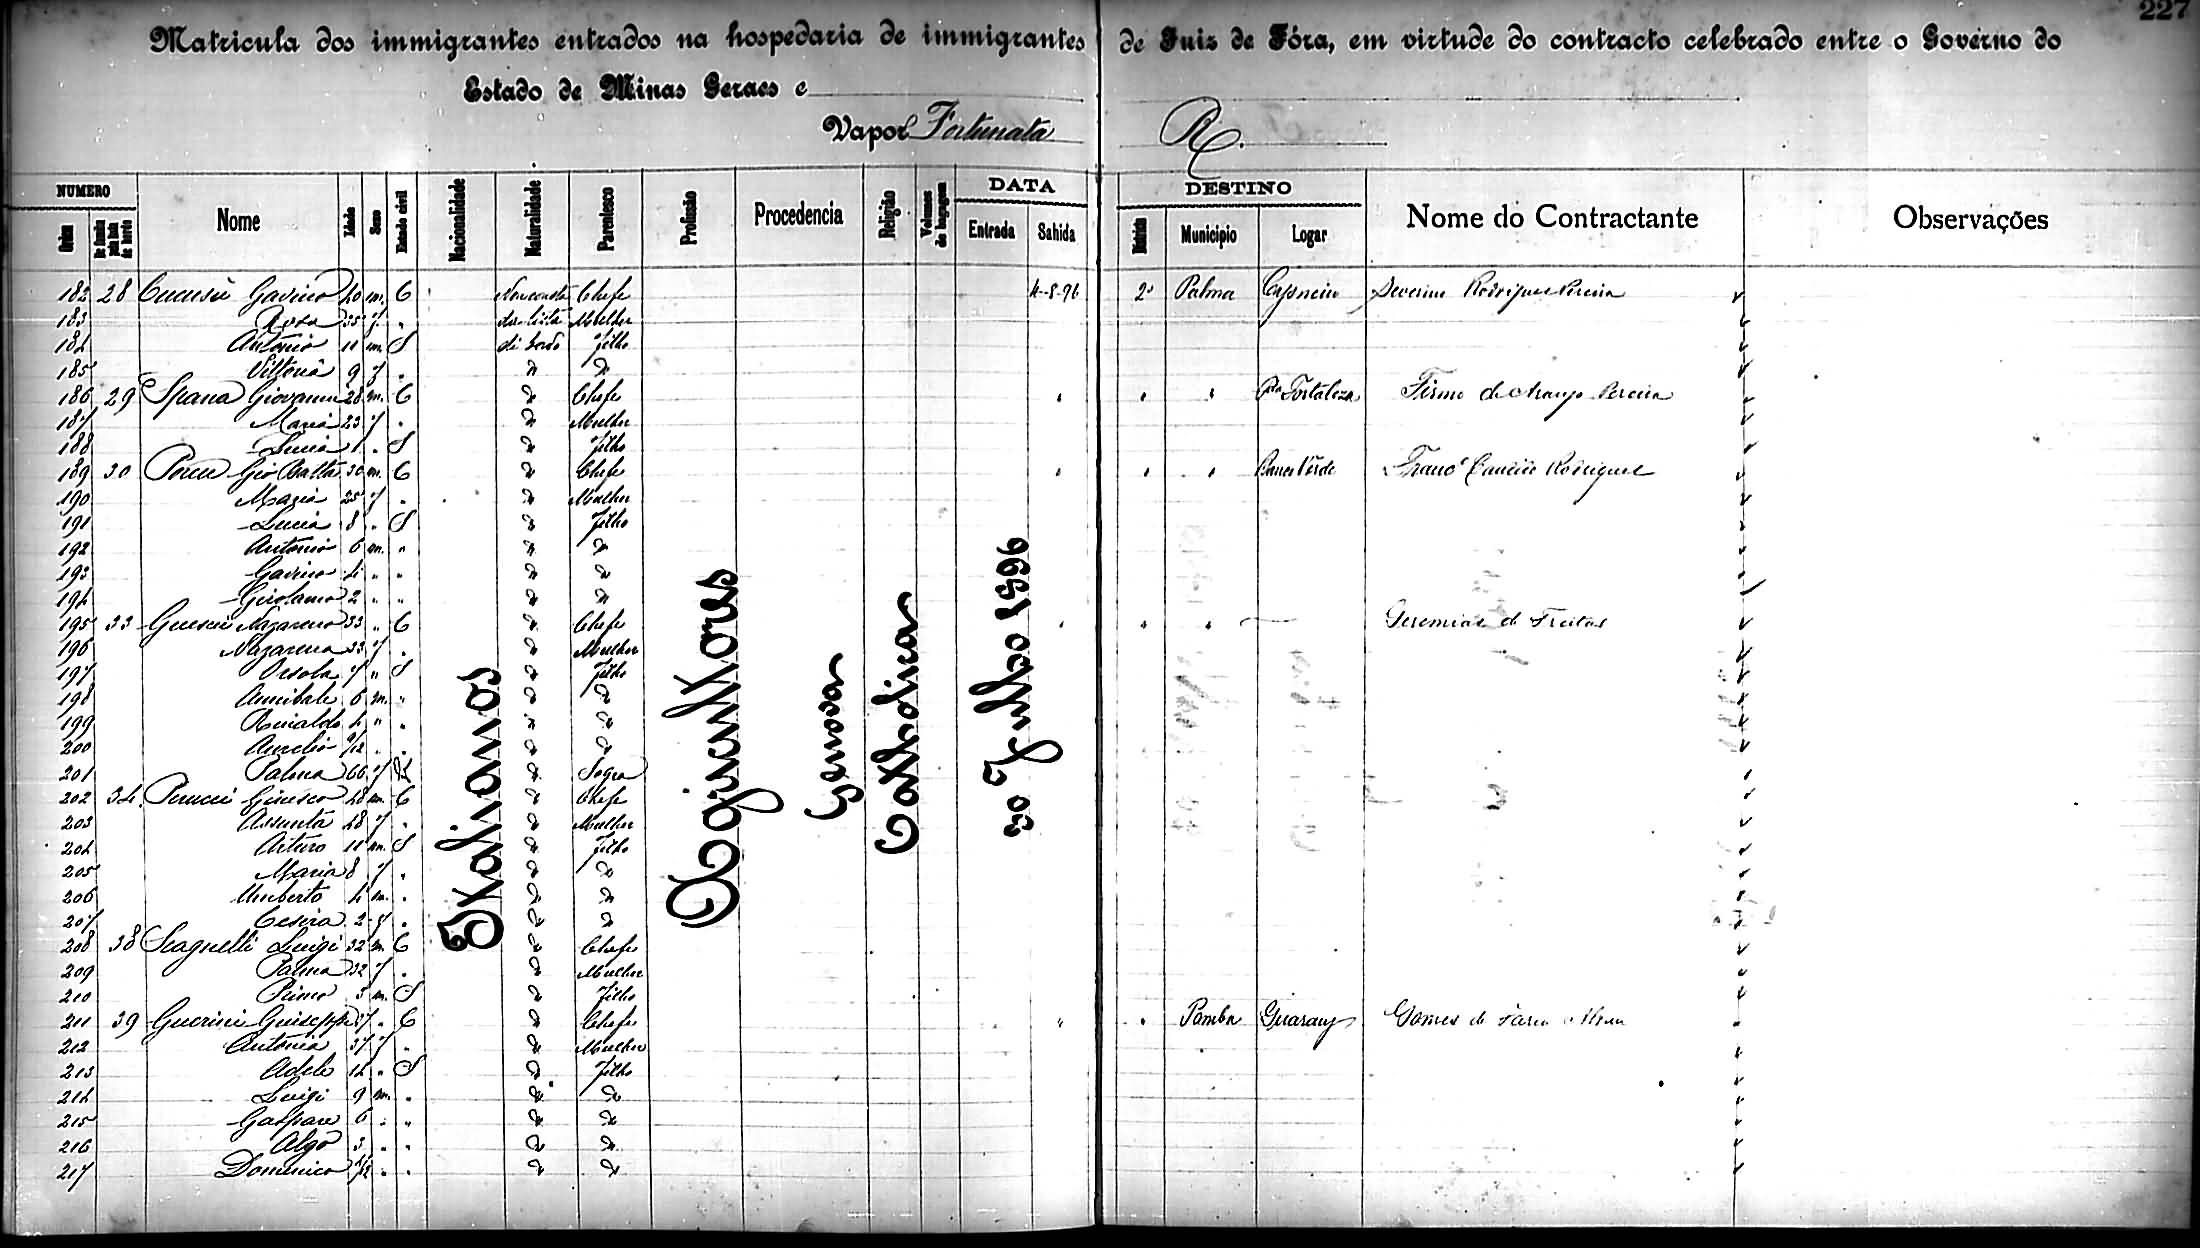 227
Matricula dos immigrantes entrados na hospedaria de immigrantes de Juiz de Fóra, em virtude do contracto celebrado entre o Governo do
Estado de Minas Geraes e
Vapor Fortunata R.
NUMERO Nome Idade Sexo Estado civil Nacionalidade Naturalidade Parentesco Profissão Procedencia Religião Volumes de bagagem DATA DESTINO Nome do Contractante Observações
Ordem De familia pela lista de bordo Entrada Sahida Districto Municipio Logar
Italianos
Agricultores
Genova
Catholica
30 Julho 1896
182 28 Gavino 40 m. C Non consta Chefe 4-8-96 2º Palma Severino Rodrigues Pereira
183 Rosa 35 f. " da lista Mulher
184 Antonio 11 m. S di bordo filho
185 Vittoria 9 f "
186 29 Spana Giovanni 28 m. C Chefe " " " Fortaleza Firmo de Araujo Pereira
187 Maria 23 f " Mulher
188 Lucia 1 " S filho
189 30 Porcu Gio Batta 30 m. C Chefe " " " Franc° Rodrigues
190 Maria 25 f " Mulher
191 Lucia 8 " S filho
192 Antonio 6 m. "
193 Gavino 4 " "
194 Girolamo 2 " "
195 33 Nazareno 33 " C Chefe " " " Geremias de Freitas
196 Nazarena 33 f " Mulher
197 Orsola 7 " S filho
198 Annibale 6 m. "
199 Rinaldo 4 " "
200 Aurelio 9/12 " "
201 Palma 66 f V Sogra
202 34 Perucci 48 m. C Chefe
203 Assunta 48 f " Mulher
204 Arturo 11 m. S filho
205 Maria 8 f "
206 Umberto 4 m. "
207 Cesira 2 f "
208 38 Scagnelli Luigi 32 m. C Chefe
209 Palma 32 f " Mulher
210 Primo 3 m. S filho
211 39 Guerini Guiseppe 37 " C Chefe " " Pomba Guarany Gomes de Faria
212 Antonia 37 f " Mulher
213 Adele 14 " S filho
214 Luigi 9 m. "
215 Gaspare 6 " "
216 Algo 3 " "
217 Domenico "